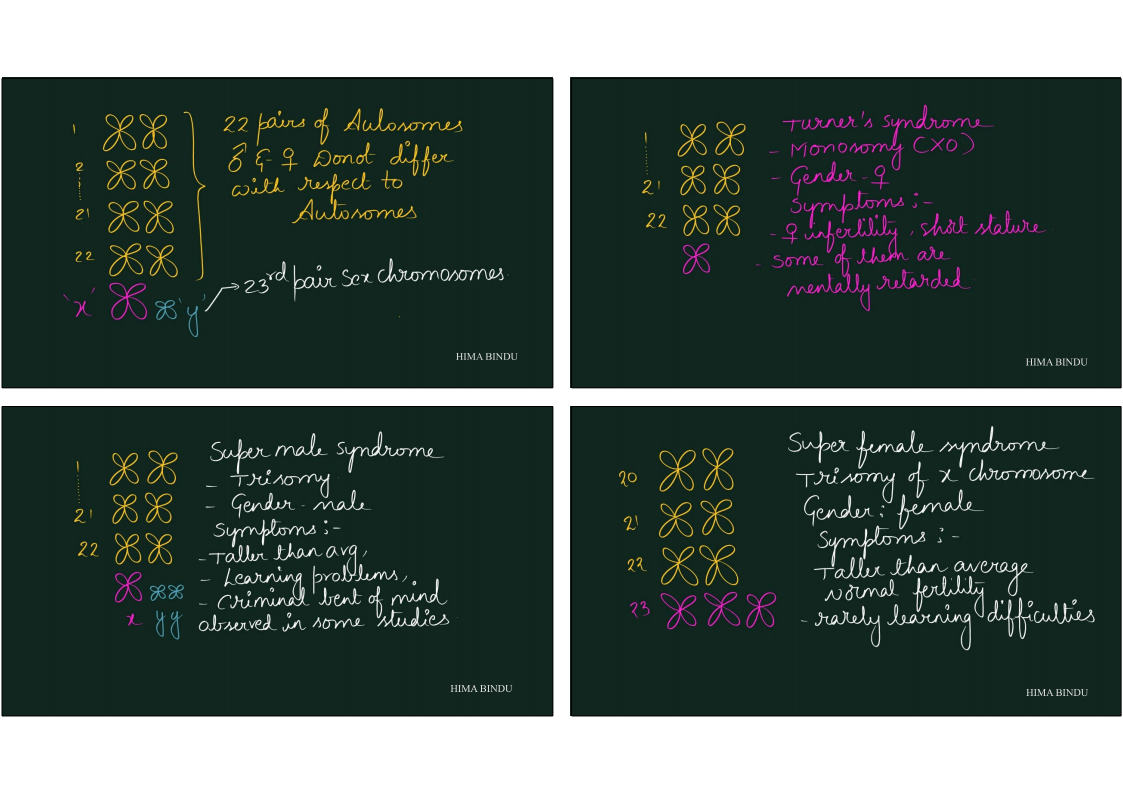 1
22 pairs of Autosomes
♂ & ♀ Donot differ
2
with respect to
21
Autosomes
22
'x'
'y'
→ 23rd pair Sex chromosomes.
HIMA BINDU
Turner's Syndrome
1
- Monosomy (XO)
- Gender - ♀
21
Symptoms :-
22
- ♀ infertility, short stature
- some of them are
mentally retarded
HIMA BINDU
Super male Syndrome
1
- Trisomy
- Gender - male
21
Symptoms :-
22
- Taller than avg,
- Learning problems,
- Criminal bent of mind
x yy
observed in some studies
HIMA BINDU
Super female syndrome
20
Trisomy of x chromosome
Gender : female
21
Symptoms : -
22
Taller than average
normal fertility
23
- rarely learning difficulties
HIMA BINDU